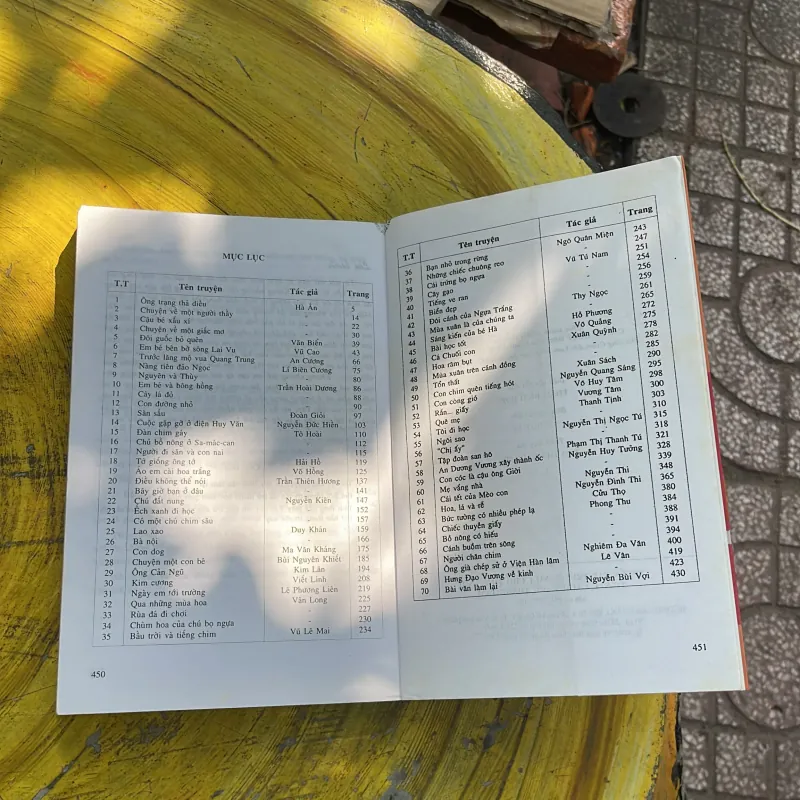 MỤC LỤC
T.T Tên truyện Tác giả Trang
1 Ông trạng thả diều Hà Ân 5
2 Chuyện về một người thầy - 14
3 Cậu bé xấu xí - 22
4 Chuyện về một giấc mơ - 30
5 Đôi guốc bỏ quên Văn Biển 39
6 Em bé bên bờ sông Lai Vu Vũ Cao 43
7 Trước lăng mộ vua Quang Trung An Cương 66
8 Nàng tiên đảo Ngọc Lí Biên Cương 75
9 Nguyên và Thùy - 80
10 Em bé và bông hồng Trần Hoài Dương 86
11 Cây lá đỏ - 88
12 Con đường nhỏ - 90
13 Săn sấu Đoàn Giỏi 97
14 Cuộc gặp gỡ ở điện Huy Văn Nguyễn Đức Hiền 103
15 Đàn chim gáy Tô Hoài 110
16 Chú bồ nông ở Sa-mác-can - 112
17 Người đi săn và con nai - 115
18 Tờ giống ông tớ Hải Hồ 119
19 Áo em cài hoa trắng Võ Hồng 125
20 Điều không thể nói Trần Thiện Hương 137
21 Bây giờ bạn ở đâu - 141
22 Chú đất nung Nguyễn Kiên 147
23 Ếch xanh đi học - 152
24 Có một chú chim sâu - 157
25 Lao xao Duy Khán 159
26 Bà nội - 166
27 Con dog Ma Văn Kháng 175
28 Chuyện một con bê Bùi Nguyên Khiết 185
29 Ông Cản Ngũ Kim Lân 194
30 Kim cương Viết Linh 208
31 Ngày em tới trường Lê Phương Liên 219
32 Qua những mùa hoa Vân Long 225
33 Rùa đá đi chơi - 227
34 Chùm hoa của chú bọ ngựa - 230
35 Bầu trời và tiếng chim Vũ Lê Mai 234
450
T.T Tên truyện Tác giả Trang
36 Bạn nhỏ trong rừng Ngô Quân Miện 243
37 Những chiếc chuông reo - 247
38 Cái trứng bọ ngựa Vũ Tú Nam 251
39 Cây gạo - 254
40 Tiếng ve ran - 256
41 Biển đẹp - 259
42 Đôi cánh của Ngựa Trắng Thy Ngọc 261
43 Mùa xuân là của chúng ta - 265
44 Sáng kiến của bé Hà Hồ Phương 272
45 Bài học tốt Võ Quảng 275
46 Cá Chuối con Xuân Quỳnh 278
47 Hoa râm bụt - 282
48 Mùa xuân trên cánh đồng 285
49 Tổn thất Xuân Sách 290
50 Con chim quên tiếng hót Nguyễn Quang Sáng 295
51 Con còng gió Võ Huy Tâm 298
52 Rắn... giấy Vương Tâm 300
53 Quê mẹ Thanh Tịnh 303
54 Tôi đi học - 310
55 Ngôi sao Nguyễn Thị Ngọc Tú 315
56 "Chị ấy" - 318
57 Tập đoàn san hô Phạm Thị Thanh Tú 321
58 An Dương Vương xây thành ốc Nguyễn Huy Tưởng 328
59 Con cóc là cậu ông Giời - 339
60 Mẹ vắng nhà Nguyễn Thi 348
61 Cái tết của Mèo con Nguyễn Đình Thi 365
62 Hoa, lá và rễ Cửu Thọ 380
63 Bức tường có nhiều phép lạ Phong Thu 384
64 Chiếc thuyền giấy - 388
65 Bồ nông có hiếu - 391
66 Cánh buồm trên sông - 394
67 Người chăn chim Nghiêm Đa Văn 400
68 Ông già chép sử ở Viện Hàn lâm Lê Vân 419
69 Hưng Đạo Vương về kinh - 423
70 Bài văn làm lại Nguyễn Bùi Vợi 430
451